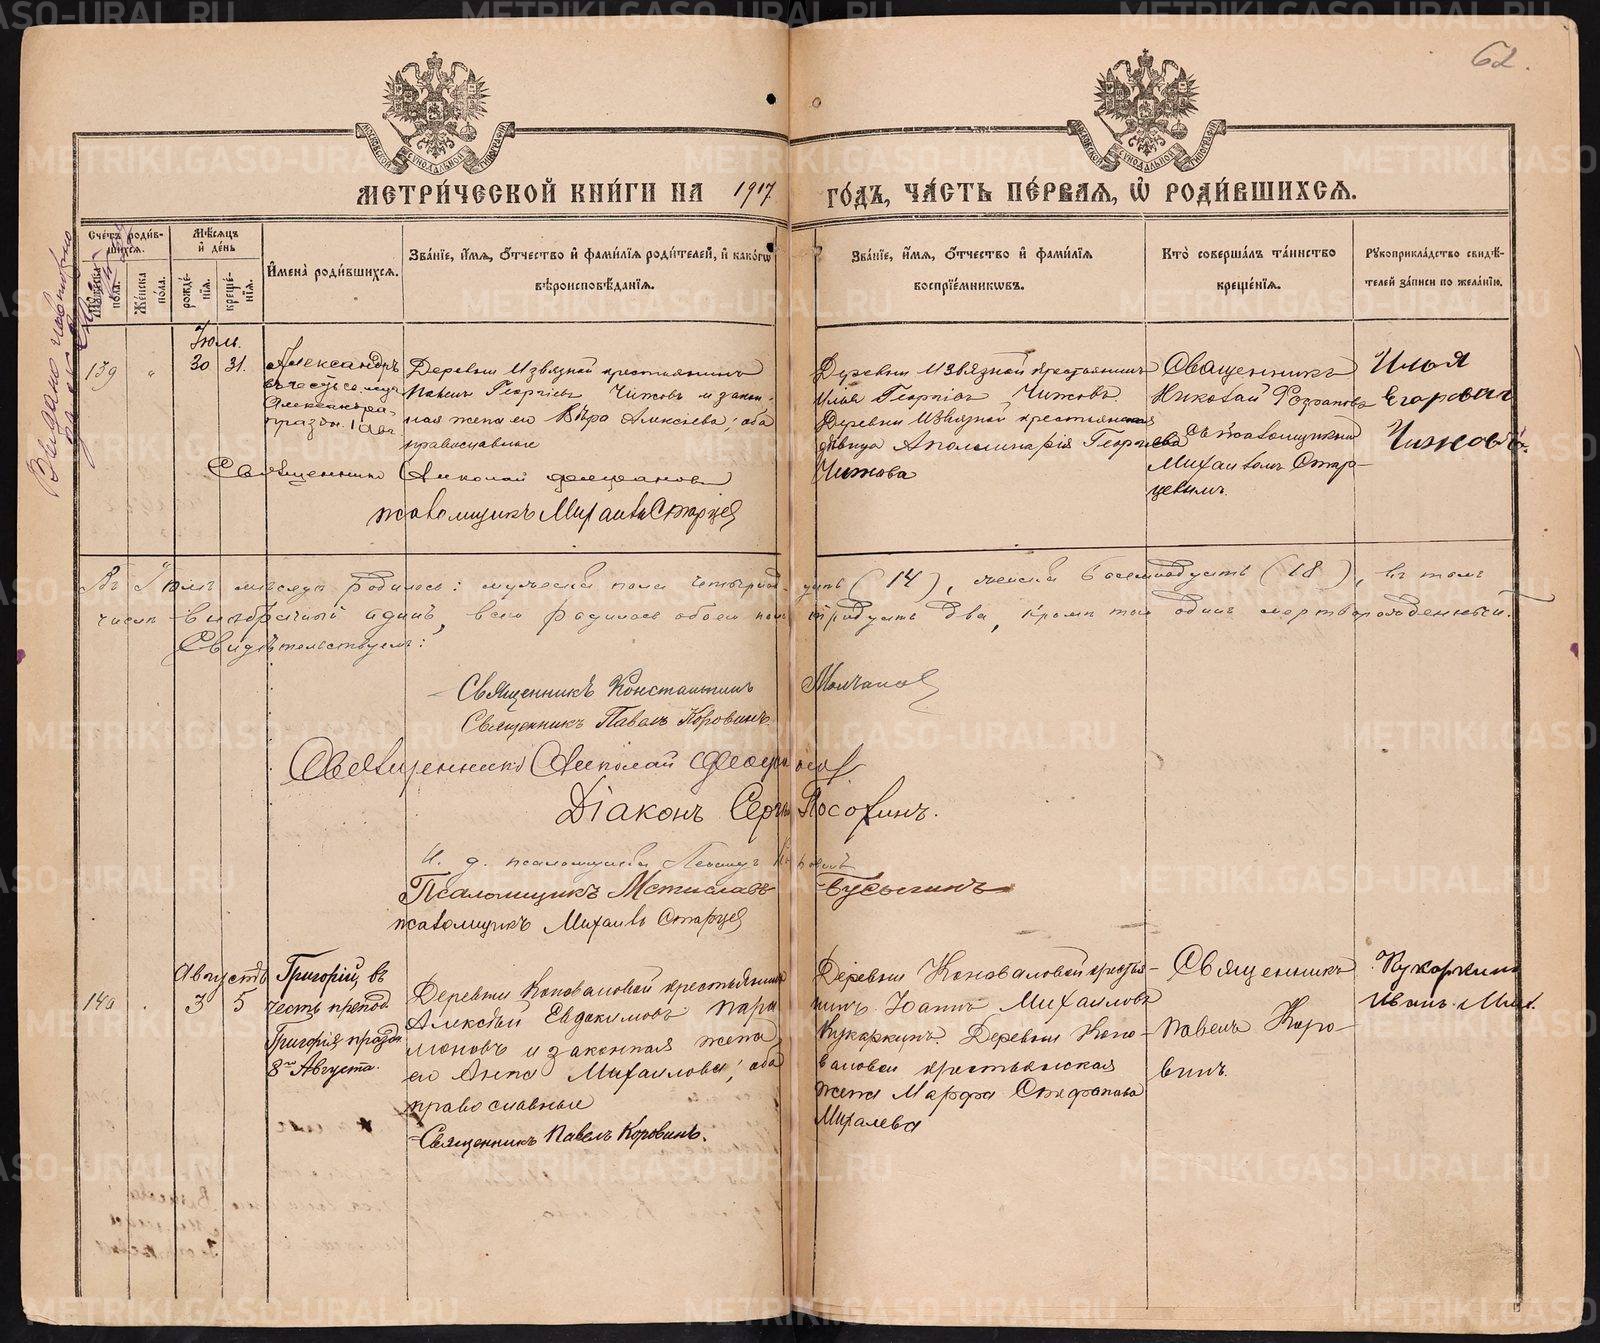 62.
МОСКОВСКОЙ СѴНОДАЛЬНОЙ ТИПОГРАФІИ
МОСКОВСКОЙ СѴНОДАЛЬНОЙ ТИПОГРАФІИ
МЕТРИ́ЧЕСКОЙ КНИ́ГИ НА 1917 ГО́ДЪ, ЧА́СТЬ ПЕ́РВАЯ, Ѡ РОДИ́ВШИХСЯ.
Сче́тъ роди́вшихся.
Му́жеска по́ла.
Же́нска по́ла.
Мѣ́сяцъ и де́нь
рожде́нія.
креще́нія.
И́мена роди́вшихся.
Зва́ніе, и́мя, о́тчество и фами́лія роди́телей, и како́гѡ
вѣроисповѣ́данія.
Зва́ніе, и́мя, о́тчество и фами́лія
воспріе́мникѡвъ.
Кто̀ соверша́лъ та́инство
креще́нія.
Рꙋкоприкла́дство свидѣ́-
телей за́писи по жела́нію.
Выдано
Іюль.
139 " 30 31.
Александръ
въ честь
Александра
празд. 1 Авг.
Деревни Извязной крестьянинъ
Павелъ Георгіевъ Чижовъ и закон-
ная жена его Вѣра Алексѣева; оба
православные
Священникъ Николай
псаломщикъ Михаилъ Старцев
Деревни Извязной крестьянинъ
Илья Георгіевъ Чижовъ.
Деревни Извязной крестьянская
дѣвица Аполлинарія Георгіева
Чижова
Священникъ
Николай
съ псаломщикомъ
Михаиломъ Стар-
цевымъ.
Илья
Егоровичъ
Чижовъ.
Въ Іюлѣ мѣсяцѣ родилось: мужеска пола четырнад-цать (14), женска восемнадцать (18), въ томъ
числѣ внѣбрачный одинъ, всего родилось обоего пола тридцать два, кромѣ того одинъ мертворожденный.
Свидѣтельствуемъ:
Священникъ Константинъ Молчанов
Священникъ Павелъ Коровинъ
Священникъ Николай
Діаконъ Сергѣй
И. д. псаломщика
Псаломщикъ Мстиславъ Бусыгинъ
псаломщикъ Михаилъ Старцев
Августъ
140 . 3 5
Григорій, въ
честь препод.
Григорія празд.
8го Августа.
Деревни Коноваловой крестьянинъ
Алексѣй Евдокимовъ Пара-
моновъ и законная жена
его Анна Михаилова; оба
православные
Священникъ Павелъ Коровинъ.
Деревни Коноваловой крестья-
нинъ Іоаннъ Михаиловъ
Кукаркинъ. Деревни Коно-
валовой крестьянская
жена Марфа Стефанова
Михалева
Священникъ
Павелъ Коро-
винъ.
Кукаркинъ
Иванъ Мих.
METRIKI.GASO-URAL.RU